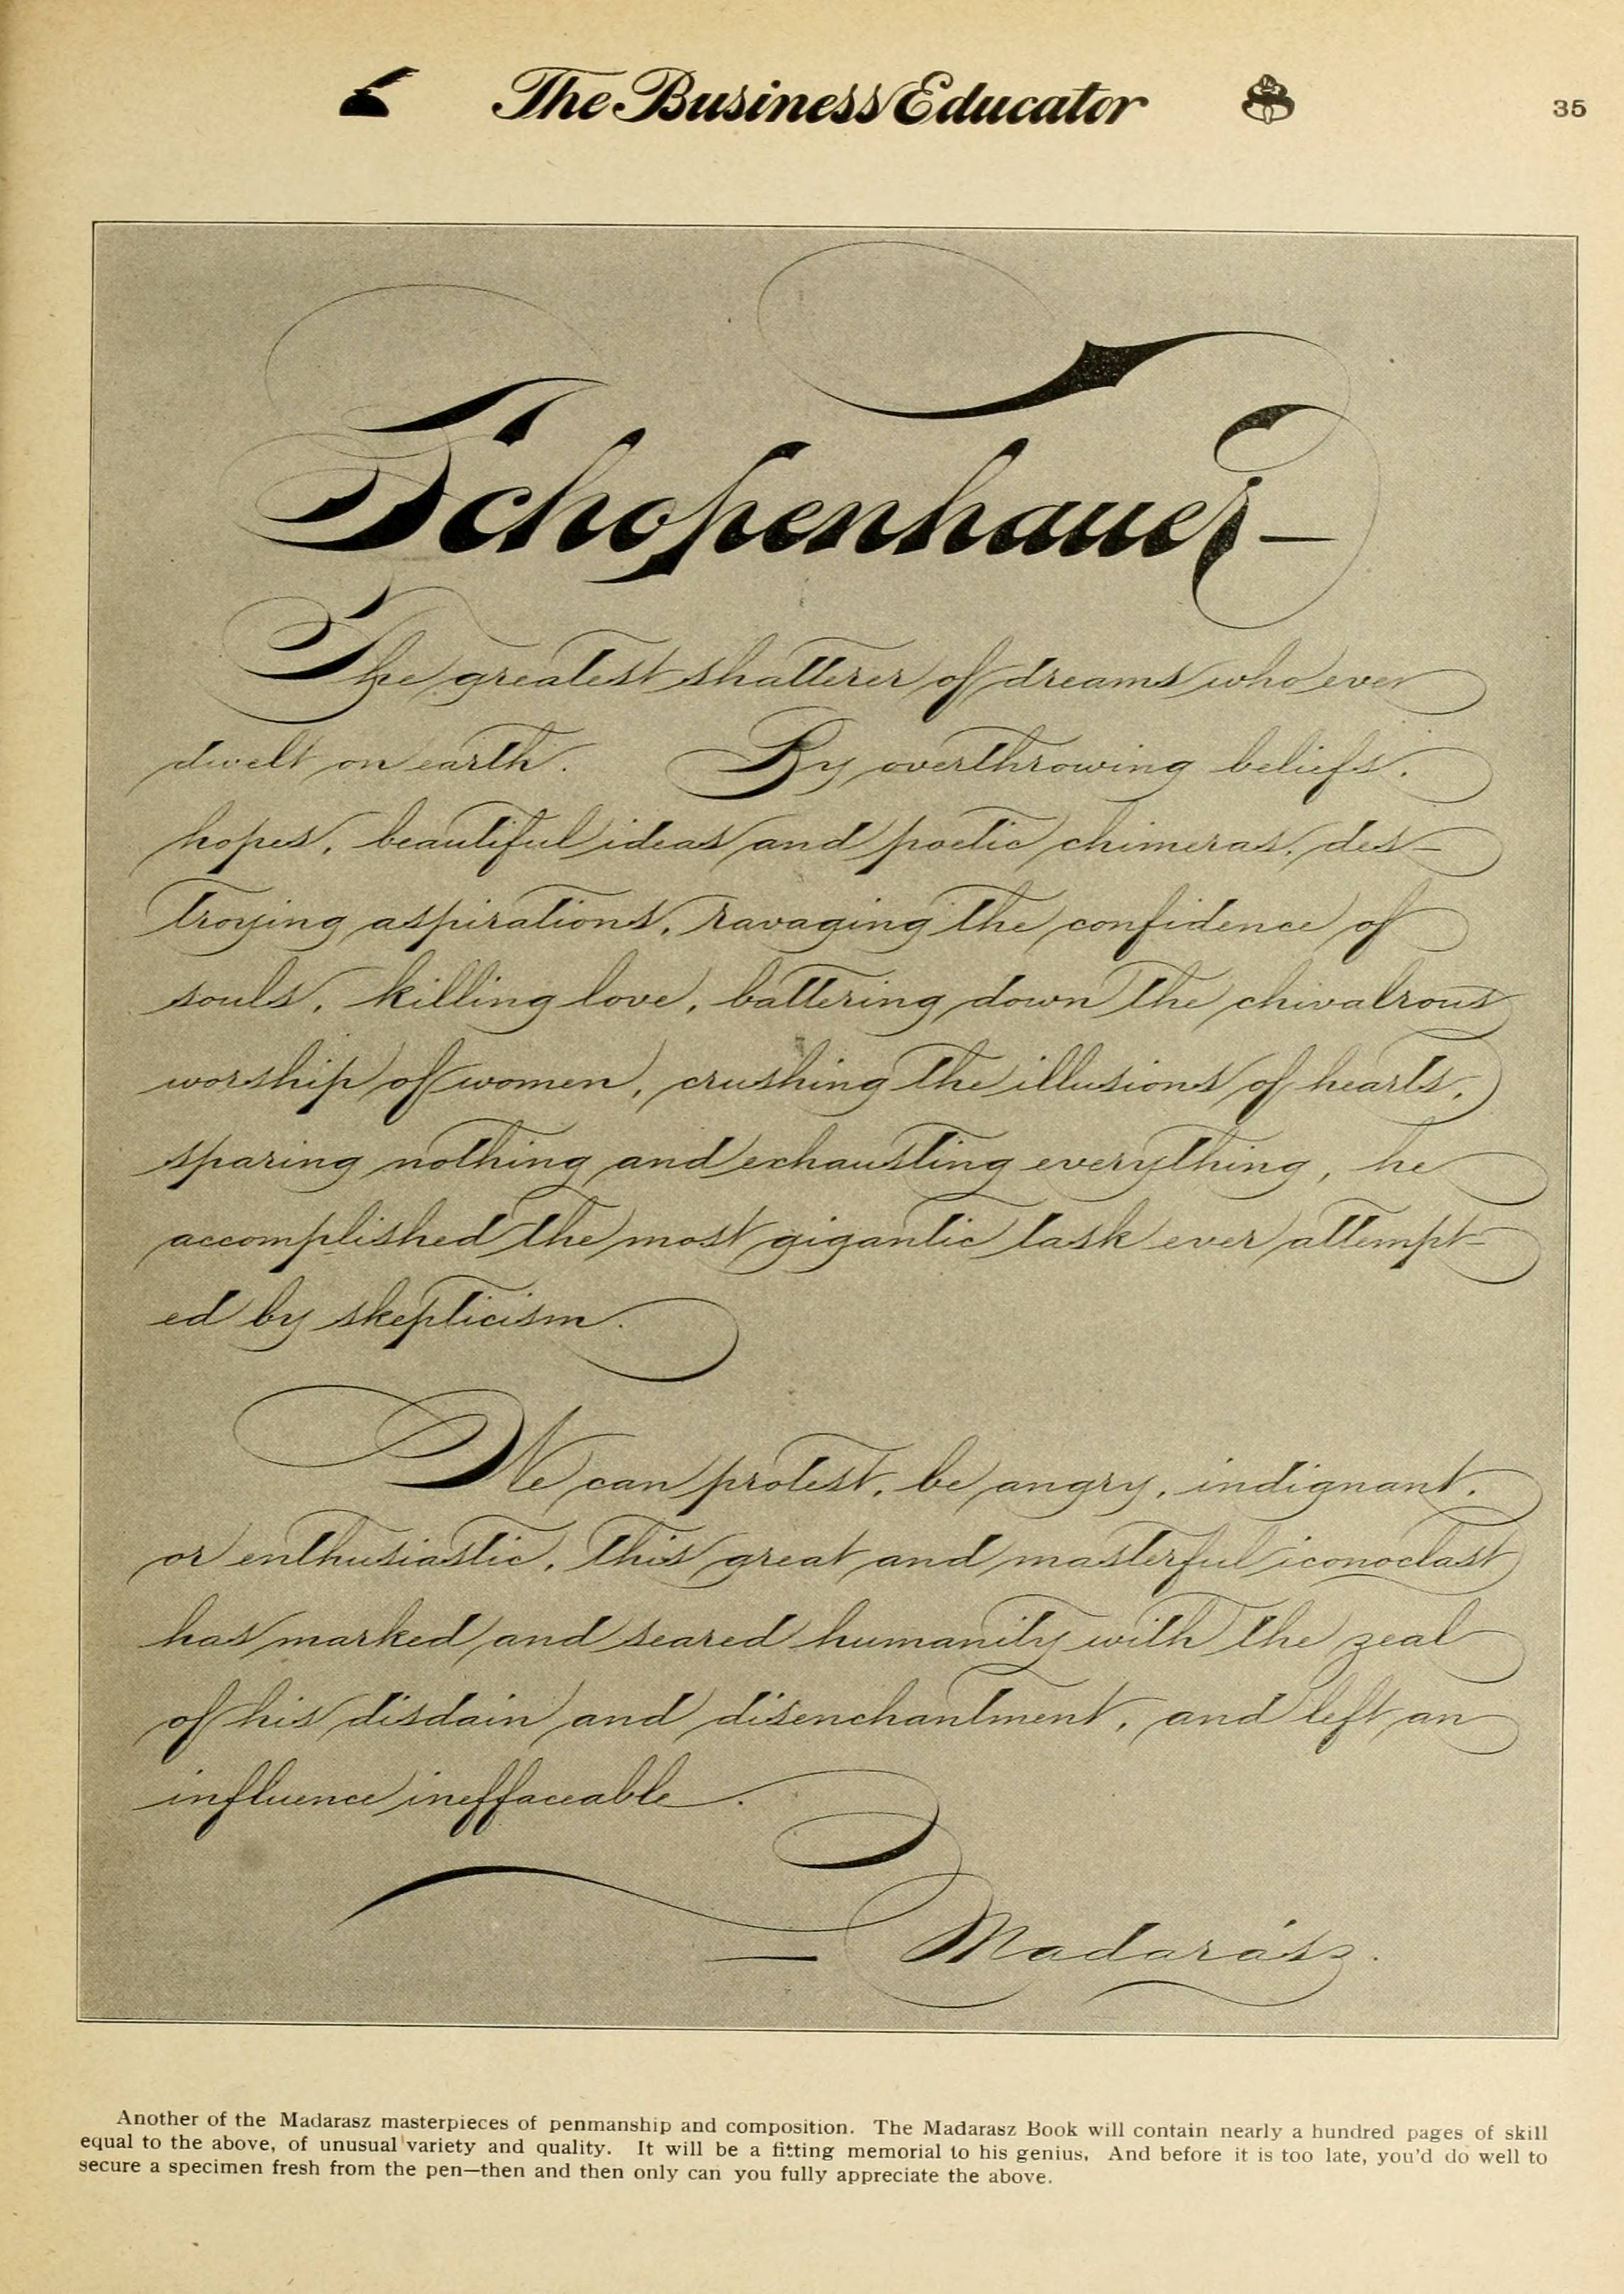 The Business Educator
35
Schopenhauer—
The greatest shatterer of dreams who ever
dwelt on earth. By overthrowing beliefs,
hopes, beautiful ideas and poetic chimeras, des-
troying aspirations, ravaging the confidence of
souls, killing love, battering down the chivalrous
worship of women, crushing the illusions of hearts,
sparing nothing and exhausting everything, he
accomplished the most gigantic task ever attempt-
ed by skepticism.
We can protest, be angry, indignant,
or enthusiastic, this great and masterful iconoclast
has marked and seared humanity with the zeal
of his disdain and disenchantment, and left an
influence ineffaceable.
— Madarász.
Another of the Madarasz masterpieces of penmanship and composition. The Madarasz Book will contain nearly a hundred pages of skill
equal to the above, of unusual variety and quality. It will be a fitting memorial to his genius. And before it is too late, you'd do well to
secure a specimen fresh from the pen—then and then only can you fully appreciate the above.